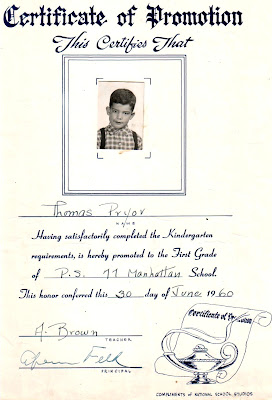 Certificate of Promotion
This Certifies That
Thomas Pryor
NAME
Having satisfactorily completed the Kindergarten
requirements, is hereby promoted to the First Grade
of P.S. 77 Manhattan School.
This honor conferred this 30 day of June 1960
A. Brown
TEACHER
Feld
PRINCIPAL
Certificate of Promotion
COMPLIMENTS of NATIONAL SCHOOL STUDIOS